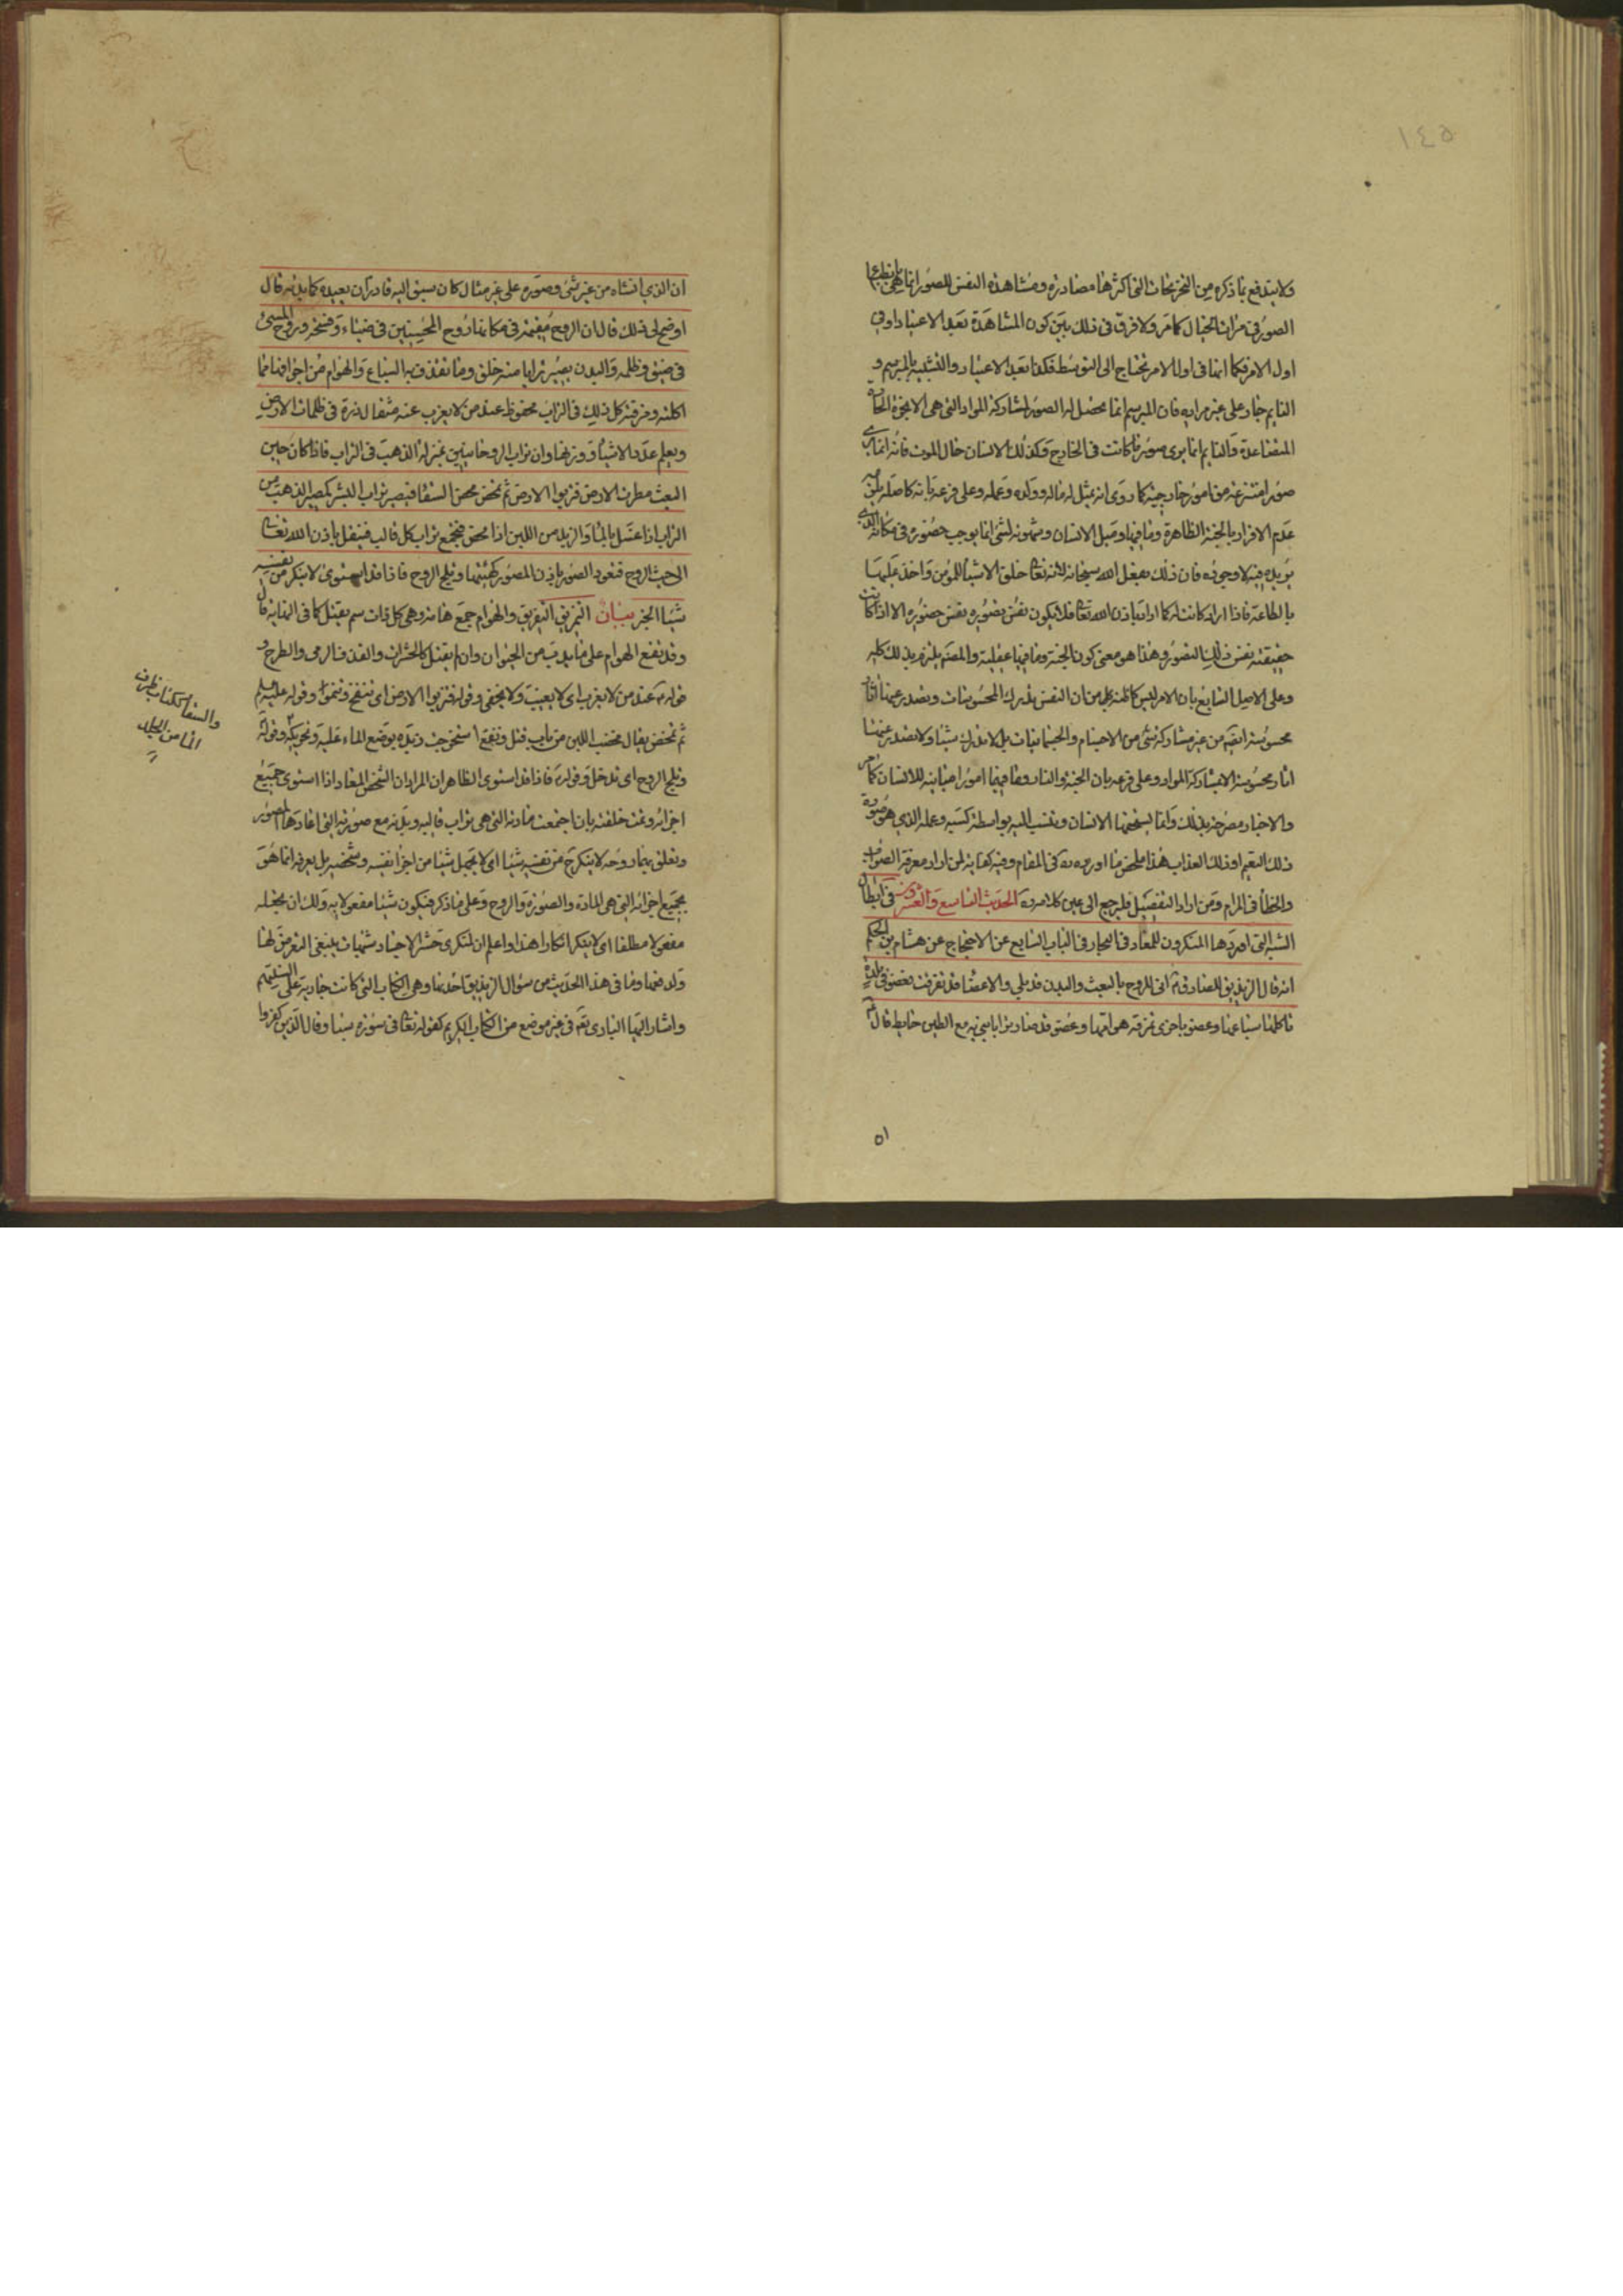 ١٤٥
ولا يندفع بما ذكره من التخريجات التى اكثرها مصادرة ومشاهدة النفس للصور انما هى بانطباع
الصور فى مرايا الخيال كما مر ولا فرق فى ذلك بين كون المشاهدة بعد الاعتياد او فى
اول الامر فكما انها فى اول الامر تحتاج الى التوسط فكذا بعد الاعتياد والتشبيه بالمبرسم و
النايم جار على غير مراده فان المبرسم انما يحصل له الصور لمشاركة المواد التى هى الابخرة الحارة
المتصاعدة والنايم انما يرى صورة ما كانت فى الخارج وكذلك الانسان حال الموت فانه انما يرى
صورا منتزعة من امور خارجية كما روى انه يمثل له ماله وولده وعمله وعلى فرعه بانه كاصله يلزمه
عدم الاقرار بالجنة الظاهرة وما فيها وميل الانسان وشهوته لشئ انما يوجب حضوره فى مكانه الذى
يريده فيه لا وجوده فان ذلك بفعل الله سبحانه لانه تعالى خلق الاشياء للمؤمن واخذ عليها
بالطاعة فاذا اراد كانت له كما اراد باذن الله تعالى فلا يكون نفس تصوره نفس حضوره الا اذا كانت
حقيقته نفس ذلك التصور وهذا هو معنى كون الجنة وما فيها عقلية والمصنف يلتزم بذلك كله
وعلى الاصل السابع بان الامر ليس كما ظنه من ان النفس تدرك المحسوسات وتصدر عنها اثار
محسوسة ايضا من غير مشاركة شئ من الاجسام والجسمانيات بل لا تدرك شيئا ولا تصدر عنها
اثار محسوسة الا بمشاركة المواد وعلى فرعه بان الجنة والنار وما فيهما امور اجنبية للانسان كما مر
والاخبار مصرحة بذلك وانما يستحقها الانسان وتنسب اليه بواسطة كسبه وعمله الذى هو صورة
ذلك النعيم او ذلك العذاب هذا ملخص ما اورده ره فى المقام وفيه كفاية لمن اراد معرفة الصواب
والخطأ فى المرام ومن اراد التفصيل فليرجع الى عين كلامه ره الحديث التاسع والعشرون فى ابطال
الشبه التى اوردها المنكرون للمعاد فى البحار فى الباب السابع عن الاحتجاج عن هشام بن الحكم
انه قال الزنديق للصادق ع انى للروح بالبعث والبدن قد بلى والاعضاء قد تفرقت فعضو فى بلدة
تاكلها سباعها وعضو باخرى تمزقه هوامها وعضو قد صار ترابا بنى به مع الطين حايط قال ع
٥١
ان الذى انشاه من غير شئ وصوره على غير مثال كان سبق اليه قادر ان يعيده كما بدئه قال
اوضح لى ذلك قال ان الروح مقيمة فى مكانها روح المحسنين فى ضياء وفسحة وروح المسئ
فى ضيق وظلمة والبدن يصير ترابا منه خلق وما تقذف به السباع والهوام من اجوافها مما
اكلته ومزقته كل ذلك فى التراب محفوظ عند من لا يعزب عنه مثقال ذرة فى ظلمات الارض
ويعلم عدد الاشياء ووزنها وان تراب الروحانيين بمنزلة الذهب فى التراب فاذا كان حين
البعث مطرت الارض فتربوا الارض ثم تمخض مخض السقاء فيصير تراب البشر كمصير الذهب من
التراب اذا غسل بالماء والزبد من اللبن اذا مخض فيجمع تراب كل قالب فينقل باذن الله تعالى
الى حيث الروح فتعود الصور باذن المصور كهيئتها وتلج الروح فاذا قد استوى لا ينكر من نفسه
شيئا الخبر بيان التمزيق التفريق والهوام جمع هامة وهى كل ذات سم يقتل كما فى النهاية قال
وقد تقع الهوام على ما يدب من الحيوان وان لم يقتل كالحشرات والقذف الرمى والطرح و
قوله ع عند من لا يعزب اى لا يغيب ولا يخفى وقوله فتربوا الارض اى تنتفخ وتنموا وقوله عليه السلم
ثم تمخض يقال مخضت اللبن من باب قتل ونفع استخرجت زبده بوضع الماء عليه وتحريكه وقوله
وتلج الروح اى تدخل وقوله ع فاذا قد استوى الظاهر ان المراد ان الشخص المعاد اذا استوى جميع
اجزائه وتمت خلقته بان اجتمعت مادته التى هى تراب قالبه وبدنه مع صورته التى اعادها المصور
وتعلق بها روحه لا ينكر ح من نفسه شيئا اى لا يجهل شيئا من اجزاء نفسه وشخصه بل يعرفه انما هو
بجميع اجزائه التى هى المادة والصورة والروح وعلى ما ذكر فتكون شيئا مفعولا به ولك ان تجعله
مفعولا مطلقا اى لا ينكر انكارا هذا واعلم ان لمنكرى حشر الاجساد شبهات ينبغى التعرض لها
ولدفعها وما فى هذا الحديث من سؤال الزنديق احدها وهى الشبهات التى كانت جارية على السنتهم
واشار اليها البارى تعالى فى غير موضع من الكتاب الكريم كقوله تعالى فى سورة سبا وقال الذين كفروا
والسقاء ككتاب ظرف
الماء من الجلد